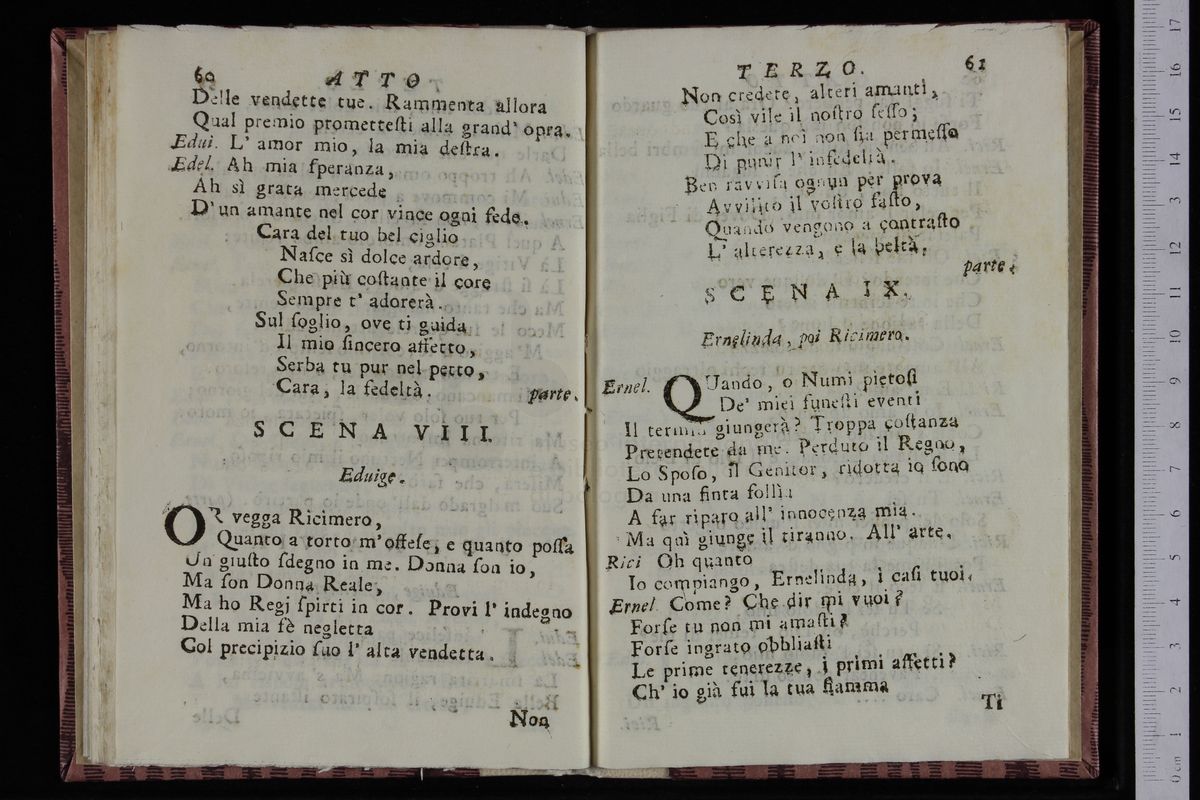 60 ATTO
Delle vendette tue. Rammenta allora
Qual premio promettesti alla grand' opra.
Edui. L' amor mio, la mia destra.
Edel. Ah mia speranza,
Ah sì grata mercede
D'un amante nel cor vince ogni fede.
Cara del tuo bel ciglio
Nasce sì dolce ardore,
Che più costante il core
Sempre t' adorerà.
Sul soglio, ove ti guida
Il mio sincero affetto,
Serba tu pur nel petto,
Cara, la fedeltà. parte.
SCENA VIII.
Eduige.
OR vegga Ricimero,
Quanto a torto m'offese, e quanto possa
Un giusto sdegno in me. Donna son io,
Ma son Donna Reale,
Ma ho Regj spirti in cor. Provi l' indegno
Della mia fè negletta
Col precipizio suo l' alta vendetta.
Non
TERZO. 61
Non credete, alteri amanti,
Così vile il nostro sesso;
E che a noi non sia permesso
Di punir l' infedeltà.
Ben ravvisa ognun per prova
Avvilito il vostro fasto,
Quando vengono a contrasto
L' alterezza, e la beltà.
parte.
SCENA IX.
Ernelinda, poi Ricimero.
Ernel. QUando, o Numi pietosi
De' miei funesti eventi
Il termin giungerà? Troppa costanza
Pretendete da me. Perduto il Regno,
Lo Sposo, il Genitor, ridotta io sono
Da una finta follia
A far riparo all' innocenza mia.
Ma quì giunge il tiranno. All' arte.
Rici Oh quanto
Io compiango, Ernelinda, i casi tuoi.
Ernel. Come? Che dir mi vuoi?
Forse tu non mi amasti?
Forse ingrato obbliasti
Le prime tenerezze, i primi affetti?
Ch' io già fui la tua fiamma
Ti